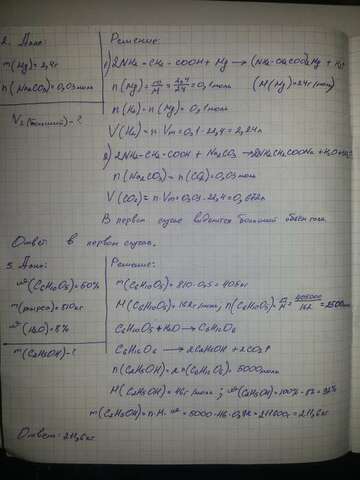 2. Дано:
m(Mg)=2,4г
n(Na₂CO₃)=0,03моль
V₂(больший)-?
Решение:
1) 2NH₂-CH₂-COOH + Mg → (NH₂-CH₂COO)₂Mg + H₂↑
n(Mg)=m/M=2,4/24=0,1моль (M(Mg)=24г/моль)
n(H₂)=n(Mg)=0,1моль
V(H₂)=n·Vm=0,1·22,4=2,24л
2) 2NH₂-CH₂-COOH + Na₂CO₃ → 2NH₂CH₂COONa+H₂O+CO₂
n(Na₂CO₃)=n(CO₂)=0,03моль
V(CO₂)=n·Vm=0,03·22,4=0,672л
В первом случае выделится больший объем газа.
Ответ в первом случае.
3. Дано:
ω(C₆H₁₀O₅)=50%
m(сырья)=810кг
ω(H₂O)=8%
m(C₂H₅OH)-?
Решение:
m(C₆H₁₀O₅)=810·0,5=405кг
M(C₆H₁₀O₅)=162г/моль; n(C₆H₁₀O₅)=m/M=405000/162=2500моль
C₆H₁₀O₅+H₂O→C₆H₁₂O₆
C₆H₁₂O₆→2C₂H₅OH+2CO₂↑
n(C₂H₅OH)=2n(C₆H₁₂O₆)=5000моль
M(C₂H₅OH)=46г/моль; ω(C₂H₅OH)=100%-8%=92%
m(C₂H₅OH)=n·M·ω=5000·46·0,92=211600г=211,6кг
Ответ: 211,6кг